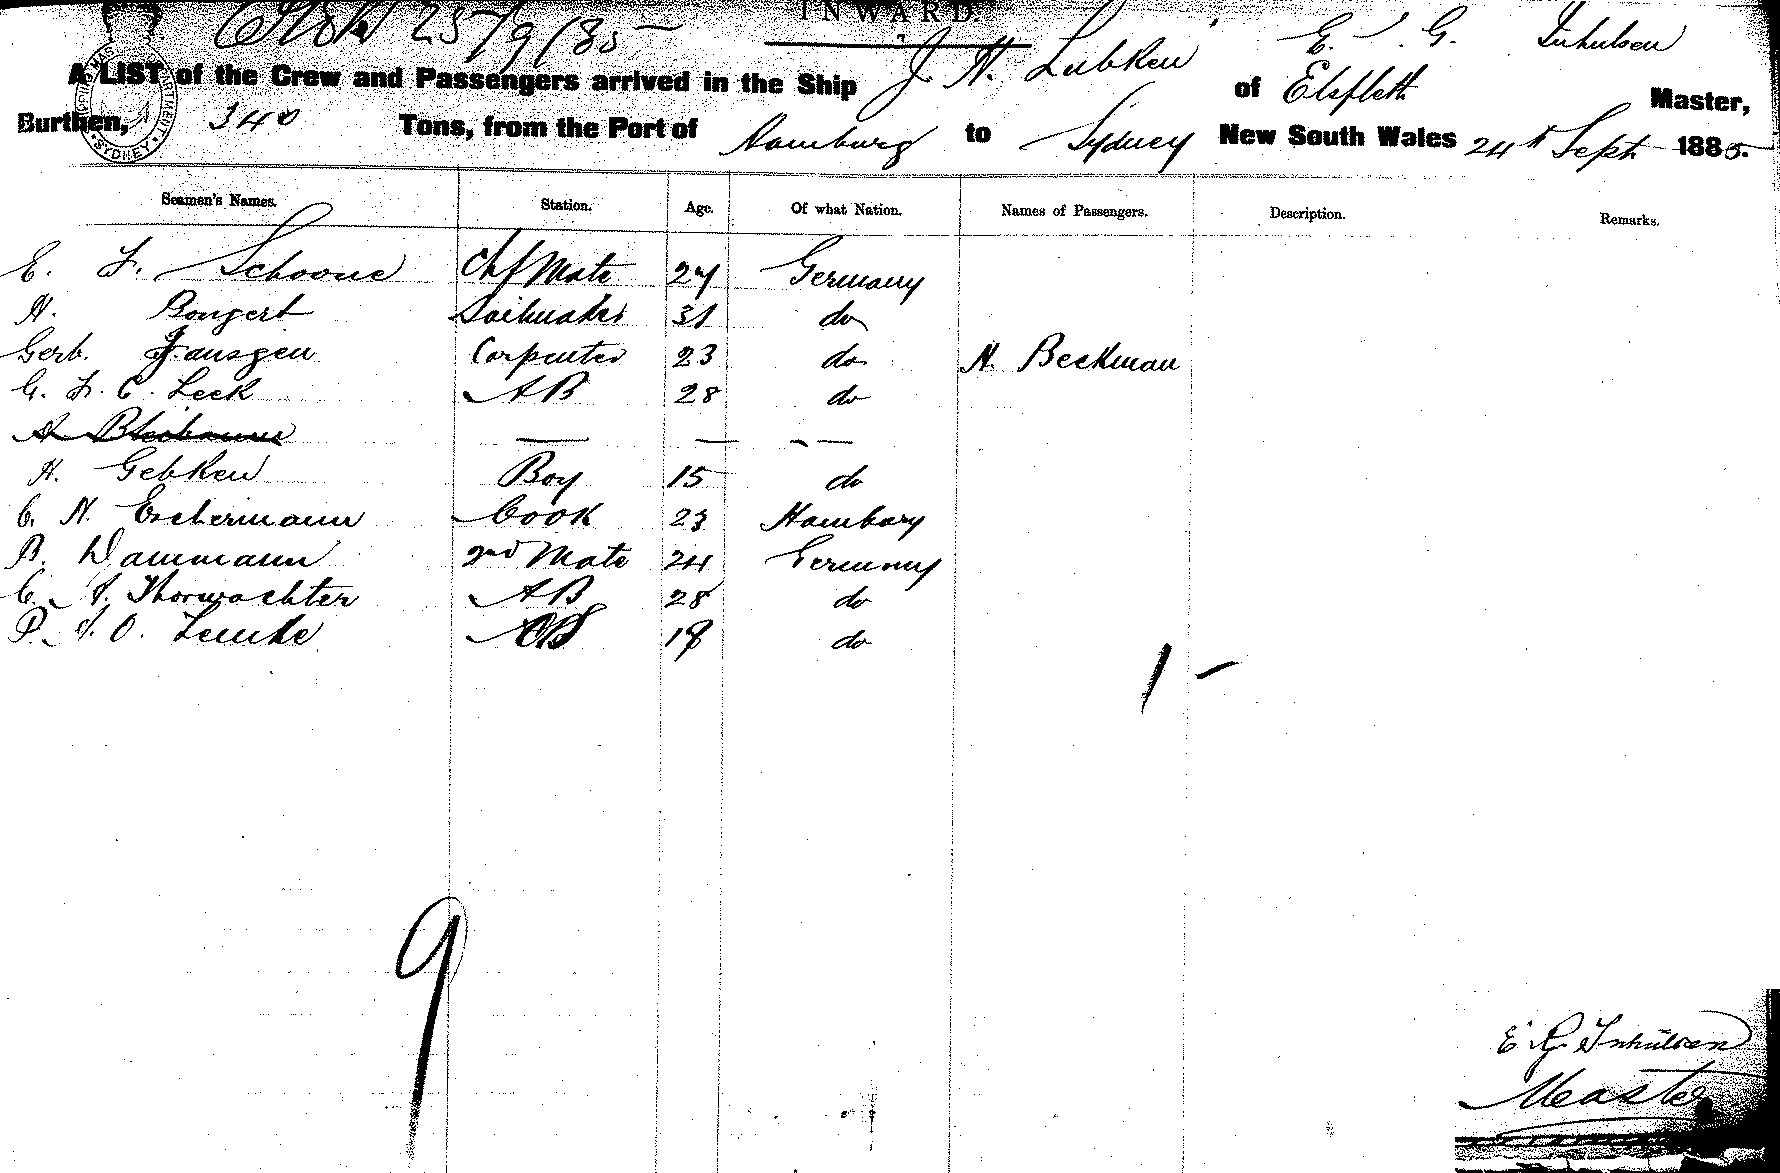 25/9/85
INWARD.
A LIST of the Crew and Passengers arrived in the Ship J. H. Lubken of Elsfleth E. G. Inhulsen Master,
Burthen, 340 Tons, from the Port of Hamburg to Sydney New South Wales 24th Sept. 1885.
SYDNEY
Seamen's Names. Station. Age. Of what Nation. Names of Passengers. Description. Remarks.
E. F. Schoone Chf Mate 27 Germany
H. Bongert Sailmaker 31 do
Gerb. Jansgen Carpenter 23 do N. Beckman
G. F. C. Leek AB 28 do
H. Gebken Boy 15 do
C. N. Eschermann Cook 23 Hamburg
B. Dammann 2nd Mate 24 Germany
C. J. Thorwachter AB 28 do
P. J. O. Lemke OS 18 do
1 -
9
E. G. Inhülsen
Master